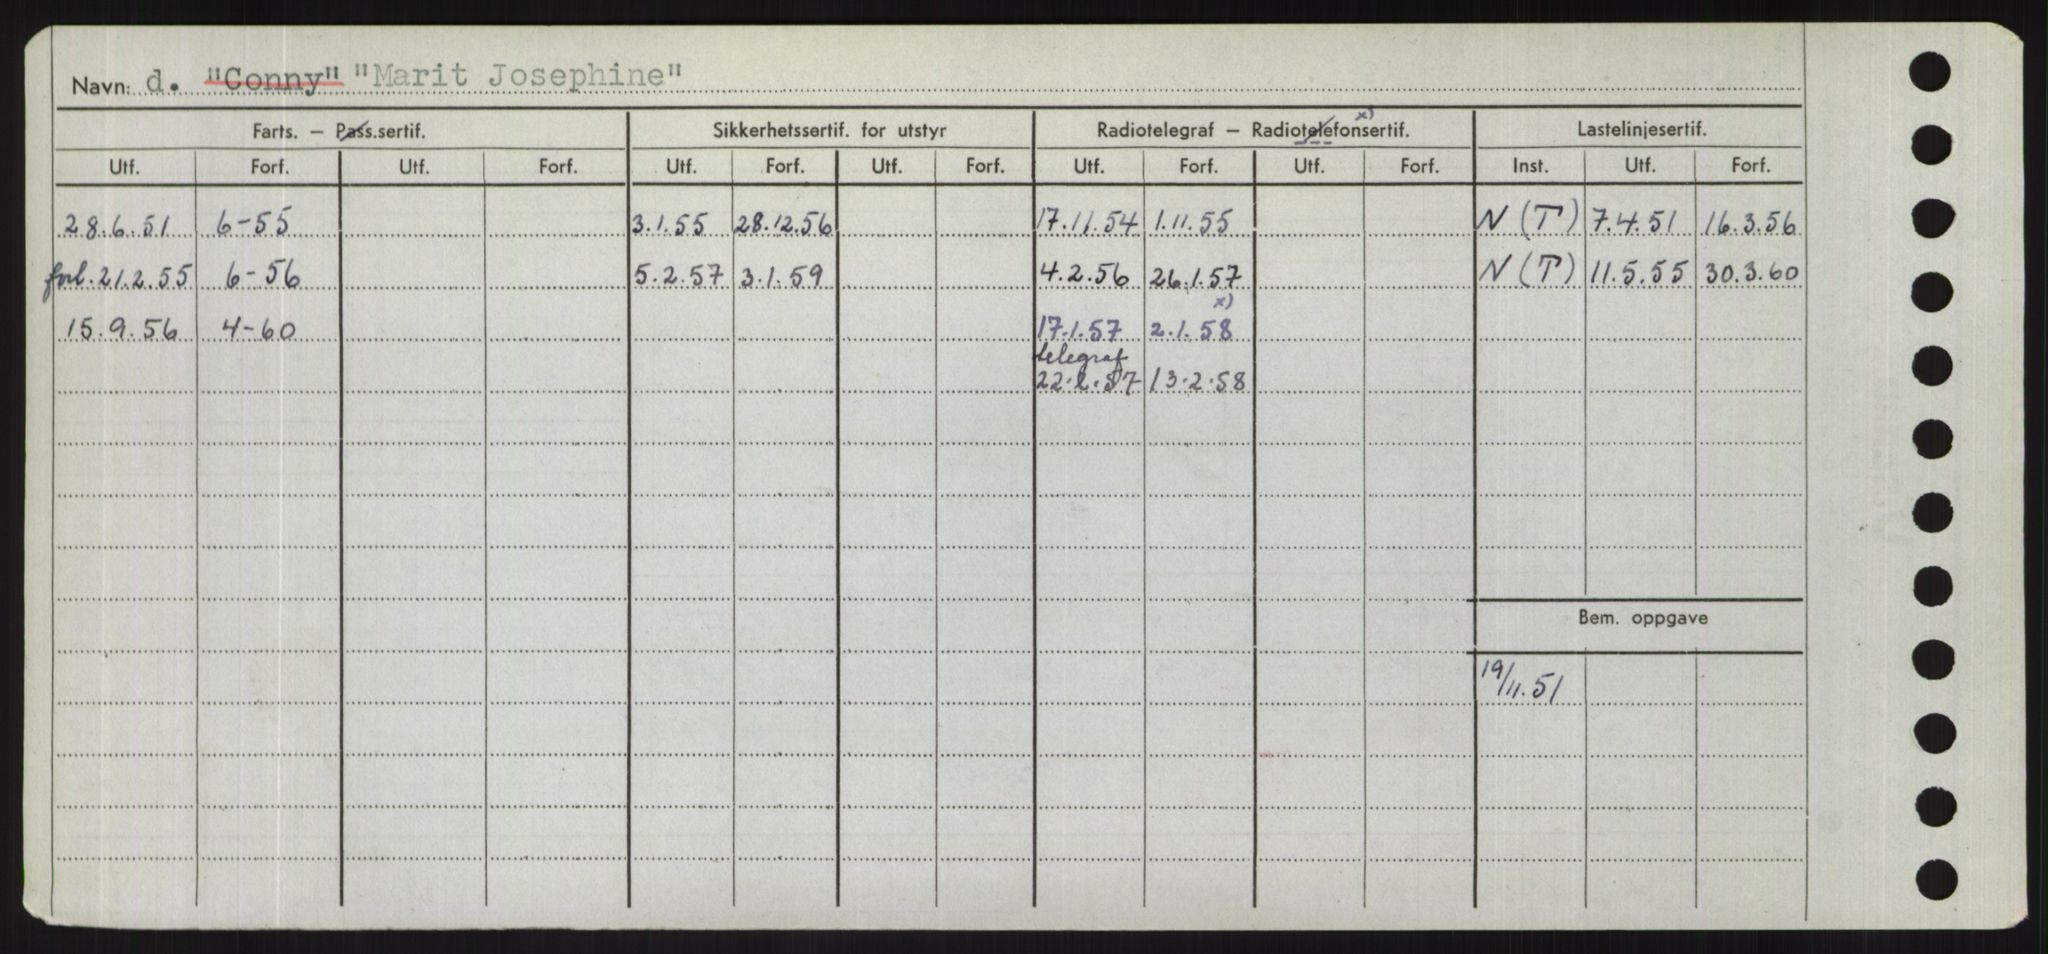 Navn: d. "Conny" "Marit Josephine"
Farts. — Pass.sertif. Sikkerhetssertif. for utstyr Radiotelegraf — Radiotelefonsertif. x) Lastelinjesertif.
Utf. Forf. Utf. Forf. Utf. Forf. Utf. Forf. Utf. Forf. Utf. Forf. Inst. Utf. Forf.
28.6.51 6-55 3.1.55 28.12.56 17.11.54 1.11.55 N (T) 7.4.51 16.3.56
forl. 21.2.55 6-56 5.2.57 3.1.59 4.2.56 26.1.57 N (T) 11.5.55 30.3.60
15.9.56 4-60 17.1.57 2.1.58 x)
telegraf
22.2.57 13.2.58
Bem. oppgave
19/11.51